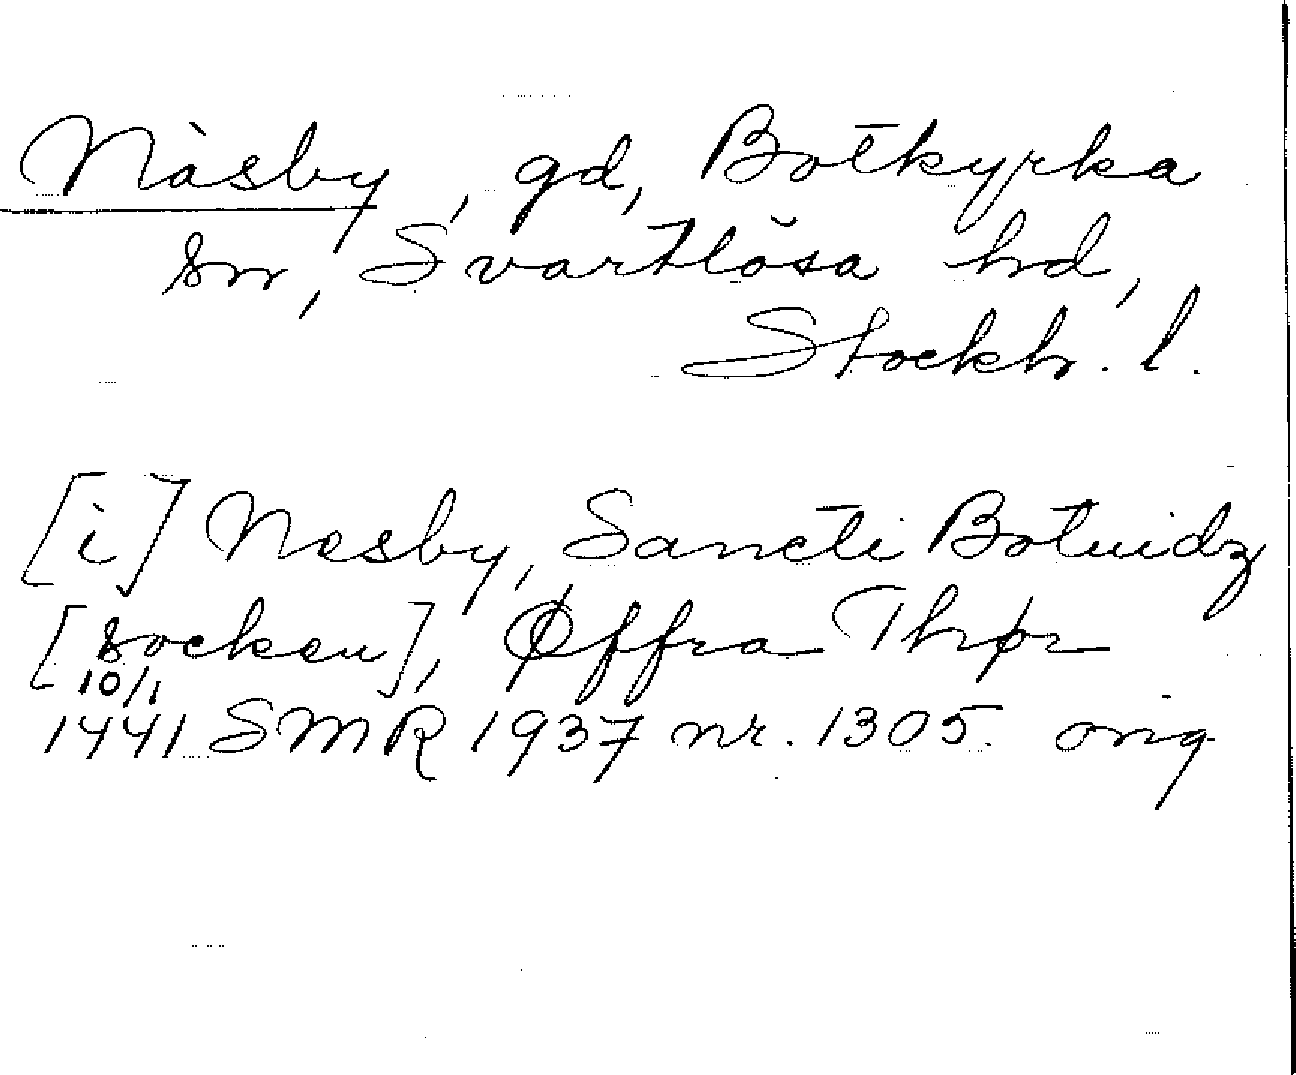 Näsby, gd, Botkyrka
sn, Svartlösa hd,
Stockh. l.
[i] Nesby, Sancti Botuidz
[socken], Øffra Thør
10/1
1441 SMR 1937 nr. 1305 orig